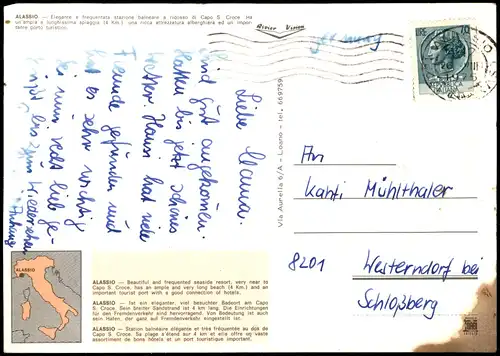 ALASSIO - Elegante e frequentata stazione balneare a ridosso di Capo S. Croce. Ha
un'ampia e lunghissima spiaggia (4 Km.) una ricca attrezzatura alberghiera ed un impor-
tante porto turistico.
Liebe Mama.
sind gut angekommen.
hatten bis jetzt schönes
Wetter. Hansi hat viele
Freunde gefunden und
hat es sehr wichtig
sei mir recht lieb ge-
bis zum Wiedersehen
ALASSIO
ALASSIO - Beautiful and frequented seaside resort, very near to
Capo S. Croce, has an ample and very long beach (4 Km.) and an
important tourist port with a good connection of hotels.
ALASSIO - Ist ein eleganter, viel besuchter Badeort am Capo
S. Croce. Sein breiter Sandstrand ist 4 km lang. Die Einrichtungen
für den Fremdenverkehr sind hervorragend. Von Bedeutung ist auch
sein Hafen, der ganz auf Fremdenverkehr eingestellt ist.
ALASSIO - Station balneaire élégante et très fréquentée au dos de
Capo S. Croce. Sa plage s'étend sur 4 km et elle offre un vaste
assortiment de bons hôtels et un port touristique important.
Via Aurelia 6/A - Loano - tel. 669759
Germany
70
An
Kathi Mühlthaler
8201 Westerndorf bei
Schloßberg